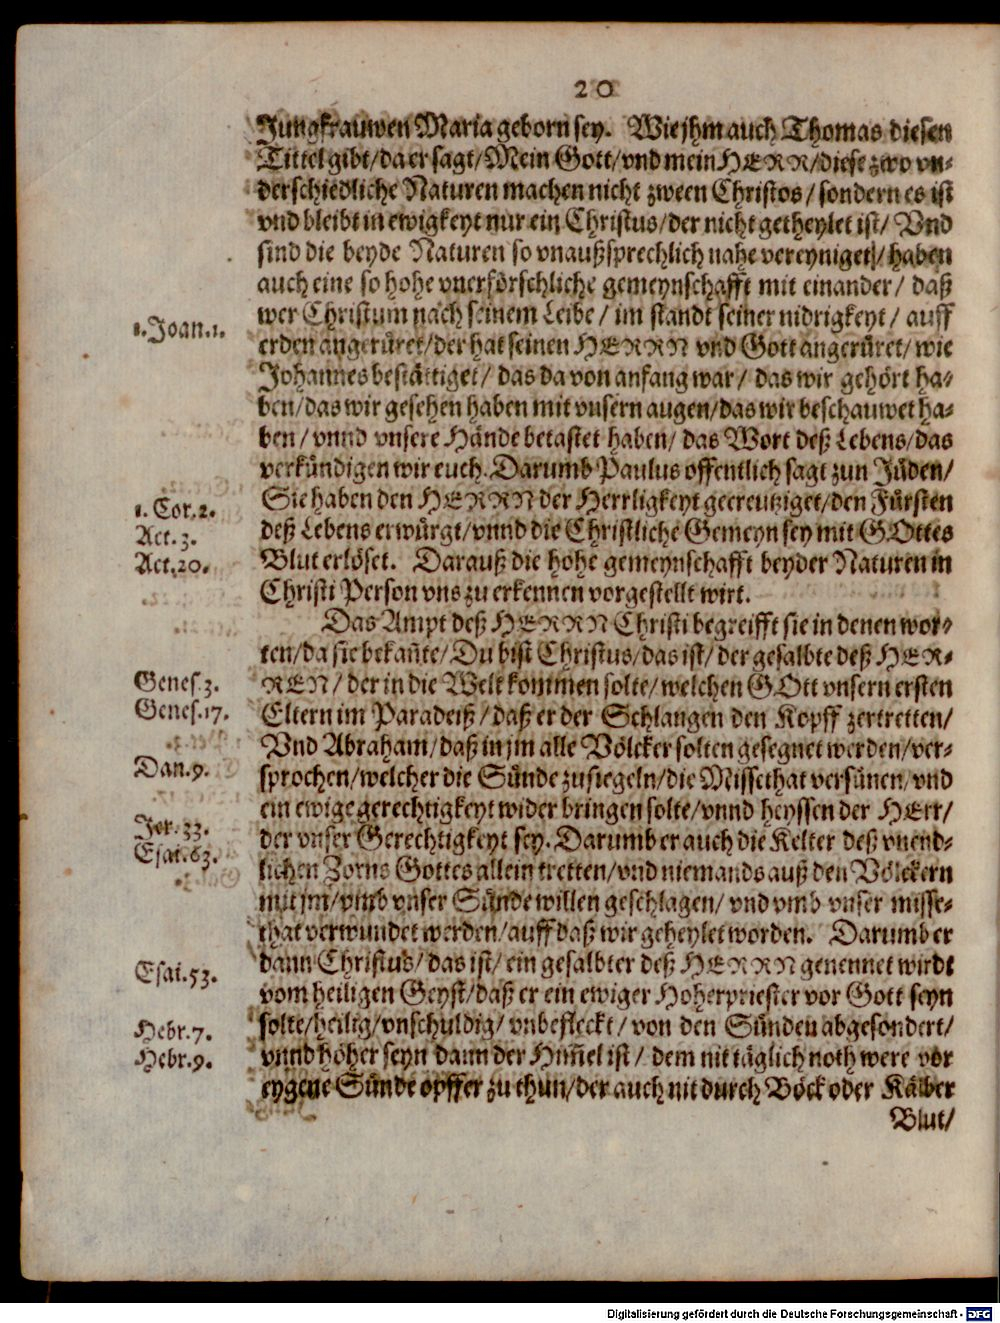 20
Jungkrauwen Maria geborn sey. Wie jhm auch Thomas diesen
Tittel gibt/ da er sagt/ Mein Gott/ vnd mein HERR/ diese zwo vn-
derschiedliche Naturen machen nicht zween Christos/ sondern es ist
vnd bleibt in ewigkeyt nur ein Christus/ der nicht getheylet ist/ Vnd
sind die beyde Naturen so vnaußsprechlich nahe vereyniget/ haben
auch eine so hohe vnerförschliche gemeynschafft mit einander/ daß
wer Christum nach seinem Leibe/ im standt seiner nidrigkeyt/ auff
1. Joan. 1.
erden angerüret/ der hat seinen HERRN vnd Gott angerüret/ wie
Johannes bestättiget/ das da von anfang war/ das wir gehört ha-
ben/ das wir gesehen haben mit vnsern augen/ das wir beschauwet ha-
ben/ vnnd vnsere Hände betastet haben/ das Wort deß Lebens/ das
verkündigen wir euch. Darumb Paulus offentlich sagt zun Jüden/
Sie haben den HERRN der Herrligkeyt gecreutziget/ den Fürsten
1. Cor. 2.
deß Lebens erwürgt/ vnnd die Christliche Gemeyn sey mit GOttes
Act. 3.
Blut erlöset. Darauß die hohe gemeynschafft beyder Naturen in
Act. 20.
Christi Person vns zu erkennen vorgestellt wirt.
Das Ampt deß HERRN Christi begreifft sie in denen wor-
ten/ da sie bekañte/ Du bist Christus/ das ist/ der gesalbte deß HER-
REN/ der in die Welt kommen solte/ welchen GOtt vnsern ersten
Genes. 3.
Eltern im Paradeiß/ daß er der Schlangen den Kopff zertretten/
Genes. 17.
Vnd Abraham/ daß in jm alle Völcker solten gesegnet werden/ ver-
sprochen/ welcher die Sünde zusiegeln/ die Missethat versünen/ vnd
Dan. 9.
ein ewige gerechtigkeyt wider bringen solte/ vnnd heyssen der HErr/
der vnser Gerechtigkeyt sey. Darumb er auch die Kelter deß vnend-
Jer. 33.
Esai. 63.
lichen Zorns Gottes allein tretten/ vnd niemands auß den Völckern
mit jm/ vmb vnser Sünde willen geschlagen/ vnd vmb vnser misse-
that verwundet werden/ auff daß wir geheylet worden. Darumb er
dann Christus/ das ist/ ein gesalbter deß HERRN genennet wirdt
Esai. 53.
vom heiligen Geyst/ daß er ein ewiger Hoherpriester vor Gott seyn
solte/ heilig/ vnschuldig/ vnbefleckt/ von den Sünden abgesondert/
Hebr. 7.
vnnd höher seyn dann der Him̃el ist/ dem nit täglich noth were vor
Hebr. 9.
eygene Sünde opffer zu thun/ der auch nit durch Böck oder Kälber
Blut/
Digitalisierung gefördert durch die Deutsche Forschungsgemeinschaft - DFG